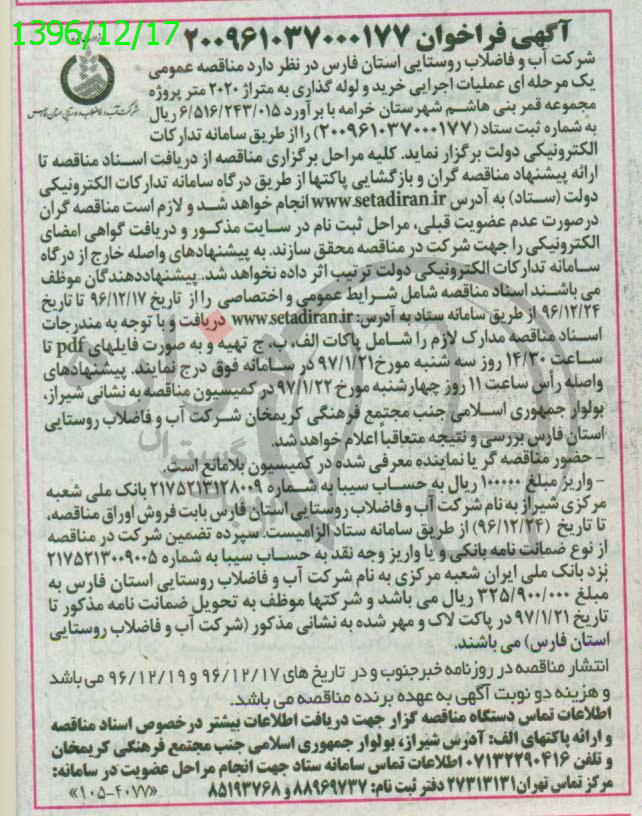 1396/12/17
آگهی فراخوان ۲۰۰۹۶۱۰۳۷۰۰۰۱۷۷
شرکت آب و فاضلاب روستایی استان فارس در نظر دارد مناقصه عمومی
یک مرحله ای عملیات اجرایی خرید و لوله گذاری به متراژ ۲۰۲۰ متر پروژه
مجموعه قمر بنی هاشم شهرستان خرامه با برآورد ۶/۵۱۶/۲۴۳/۰۱۵ ریال
به شماره ثبت ستاد (۲۰۰۹۶۱۰۳۷۰۰۰۱۷۷) را از طریق سامانه تدارکات
الکترونیکی دولت برگزار نماید. کلیه مراحل برگزاری مناقصه از دریافت اسناد مناقصه تا
ارائه پیشنهاد مناقصه گران و بازگشایی پاکتها از طریق درگاه سامانه تدارکات الکترونیکی
دولت (ستاد) به آدرس www.setadiran.ir انجام خواهد شد و لازم است مناقصه گران
درصورت عدم عضویت قبلی، مراحل ثبت نام در سایت مذکور و دریافت گواهی امضای
الکترونیکی را جهت شرکت در مناقصه محقق سازند. به پیشنهادهای واصله خارج از درگاه
سامانه تدارکات الکترونیکی دولت ترتیب اثر داده نخواهد شد. پیشنهاددهندگان موظف
می باشند اسناد مناقصه شامل شرایط عمومی و اختصاصی را از تاریخ ۹۶/۱۲/۱۷ تا تاریخ
۹۶/۱۲/۲۴ از طریق سامانه ستاد به آدرس: www.setadiran.ir دریافت و با توجه به مندرجات
اسناد مناقصه مدارک لازم را شامل پاکات الف، ب، ج تهیه و به صورت فایلهای pdf تا
ساعت ۱۴/۳۰ روز سه شنبه مورخ ۹۷/۱/۲۱ در سامانه فوق درج نمایند. پیشنهادهای
واصله رأس ساعت ۱۱ روز چهارشنبه مورخ ۹۷/۱/۲۲ در کمیسیون مناقصه به نشانی شیراز،
بولوار جمهوری اسلامی جنب مجتمع فرهنگی کریمخان شرکت آب و فاضلاب روستایی
استان فارس بررسی و نتیجه متعاقباً اعلام خواهد شد.
- حضور مناقصه گر یا نماینده معرفی شده در کمیسیون بلامانع است.
- واریز مبلغ ۱۰۰۰۰۰ ریال به حساب سیبا به شماره ۲۱۷۵۲۱۳۱۲۸۰۰۹ بانک ملی شعبه
مرکزی شیراز به نام شرکت آب و فاضلاب روستایی استان فارس بابت فروش اوراق مناقصه،
تا تاریخ (۹۶/۱۲/۲۴) از طریق سامانه ستاد الزامیست. سپرده تضمین شرکت در مناقصه
از نوع ضمانت نامه بانکی و یا واریز وجه نقد به حساب سیبا به شماره ۲۱۷۵۲۱۳۰۰۹۰۰۵
نزد بانک ملی ایران شعبه مرکزی به نام شرکت آب و فاضلاب روستایی استان فارس به
مبلغ ۳۲۵/۹۰۰/۰۰۰ ریال می باشد و شرکتها موظف به تحویل ضمانت نامه مذکور تا
تاریخ ۹۷/۱/۲۱ در پاکت لاک و مهر شده به نشانی مذکور (شرکت آب و فاضلاب روستایی
استان فارس) می باشند.
انتشار مناقصه در روزنامه خبرجنوب و در تاریخ های ۹۶/۱۲/۱۷ و ۹۶/۱۲/۱۹ می باشد
و هزینه دو نوبت آگهی به عهده برنده مناقصه می باشد.
اطلاعات تماس دستگاه مناقصه گزار جهت دریافت اطلاعات بیشتر درخصوص اسناد مناقصه
و ارائه پاکتهای الف: آدرس شیراز، بولوار جمهوری اسلامی جنب مجتمع فرهنگی کریمخان
و تلفن ۰۷۱۳۲۲۹۰۴۱۶ اطلاعات تماس سامانه ستاد جهت انجام مراحل عضویت در سامانه:
مرکز تماس تهران ۲۷۳۱۳۱۳۱ دفتر ثبت نام: ۸۸۹۶۹۷۳۷ و ۸۵۱۹۳۷۶۸
«۱۰۵-۴۰۷۷»